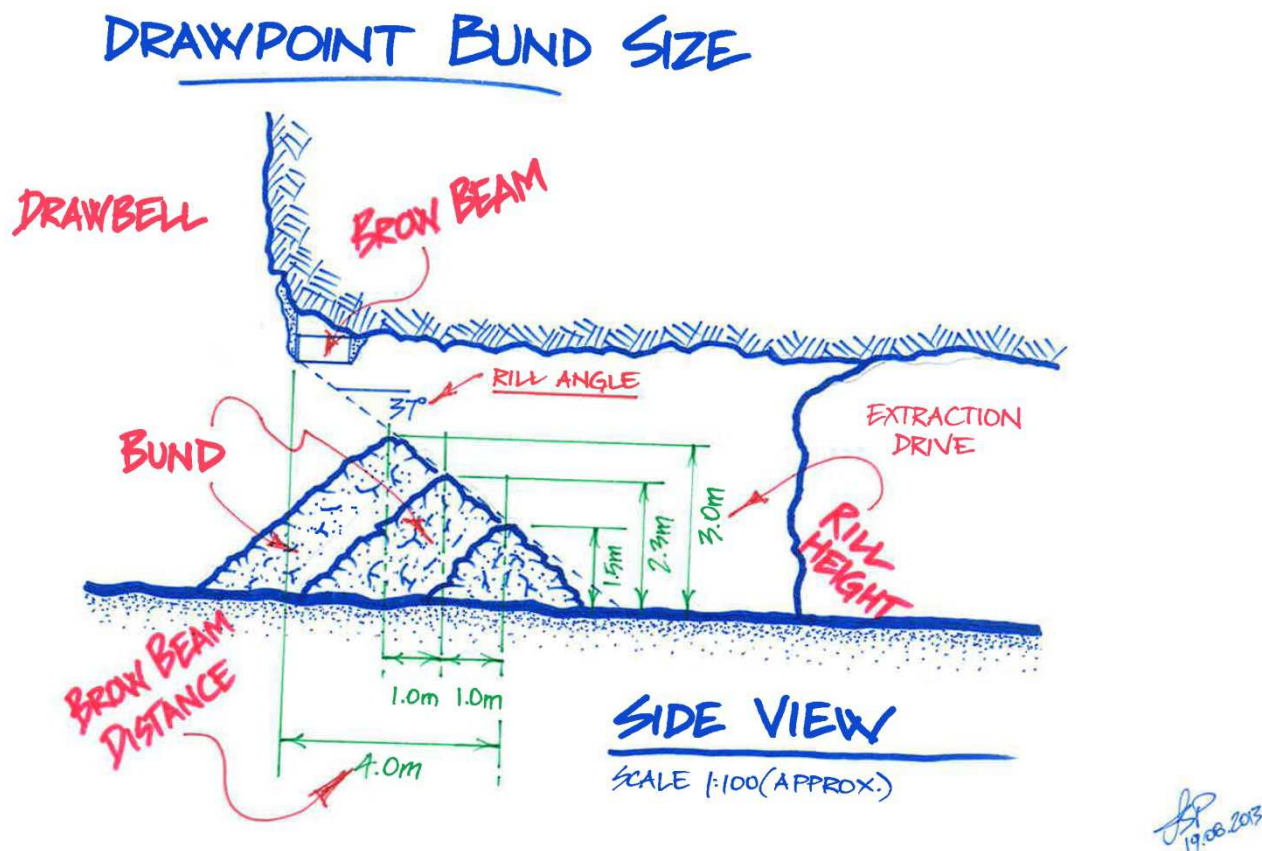 DRAWPOINT BUND SIZE
DRAWBELL
BROW BEAM
RILL ANGLE
37°
BUND
EXTRACTION
DRIVE
RILL
HEIGHT
1.5m
2.3m
3.0m
BROW BEAM
DISTANCE
1.0m 1.0m
4.0m
SIDE VIEW
SCALE 1:100 (APPROX.)
JSP
19.08.2013